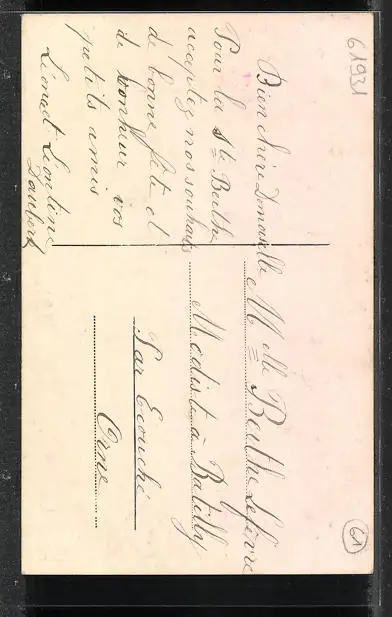 61931
Bien chère Demoiselle
Pour la Ste Berthe
acceptez nos souhaits
de bonne fête et
de bonheur vos
petits amis
Lionel Léontine
Daubert
Mlle Berthe Lefèvre
Modiste à Batilly
Par Ecouché
Orne
61